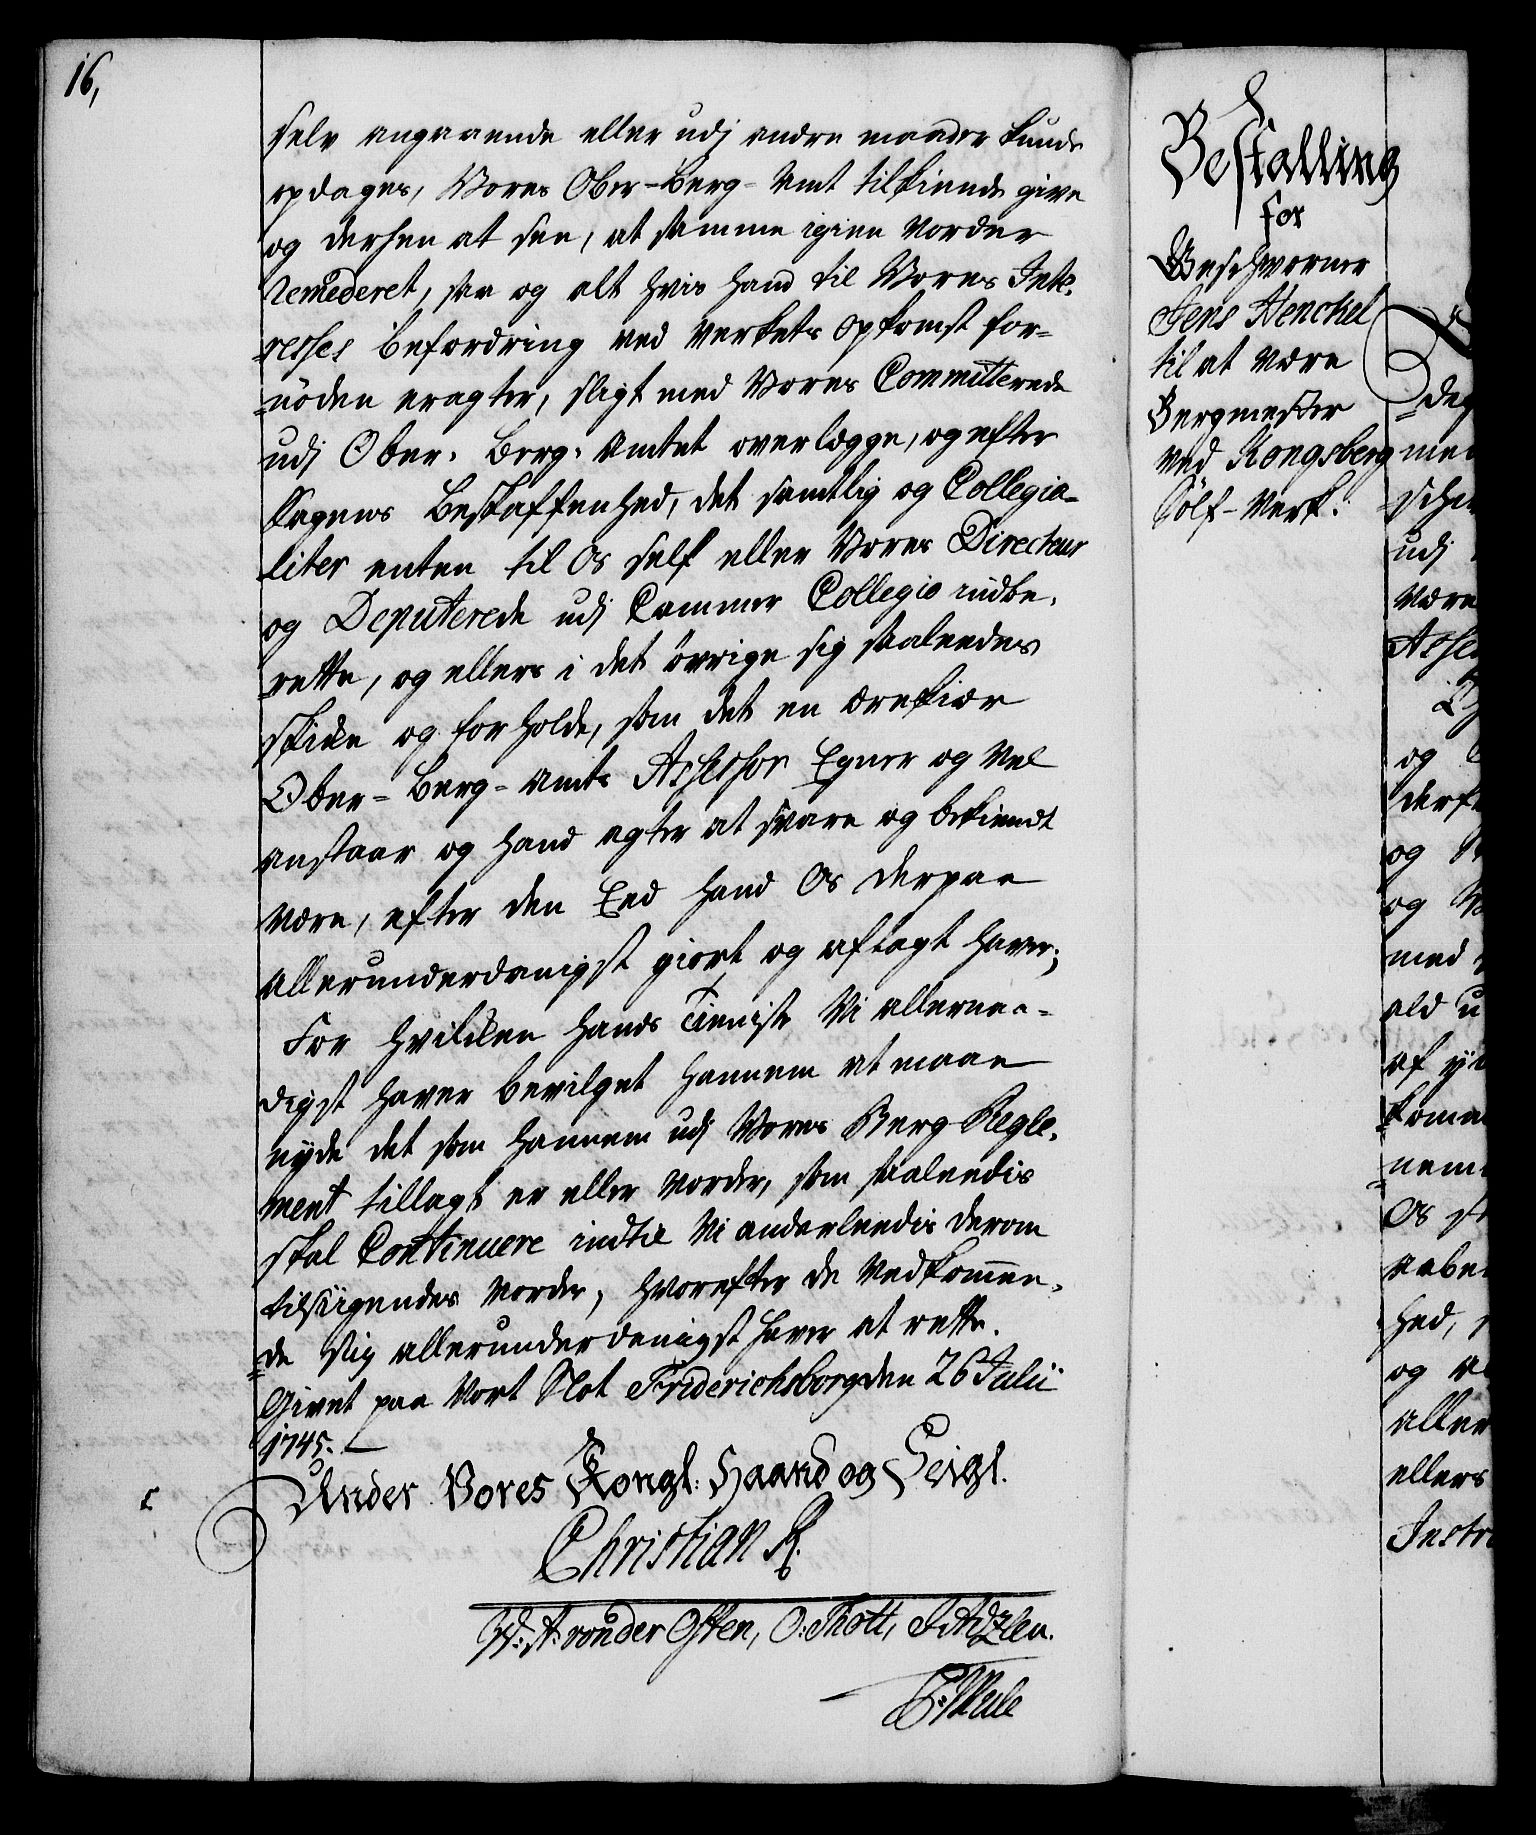 16,
selv angaaende eller udj andre maader kunde
opdages, Vores Ober-Berg-Amt tilkiende give
og derhen at see, at samme igien vorder
remederet, saa og alt hvis hand til Vores Inte-
resses befordring ved Verkets opkomst for-
nöden eragter, sligt med Vores Committerede
udj Ober-Berg-Amtet overlegge, og efter
Sagens Beskaffenhed, det samtlig og Collegia-
liter enten til Os self eller Vores Directeur
og Deputerede udj Cammer Collegio indbe-
rette, og ellers i det övrige sig saaledes
skicke og forholde, som det en ærekier
Ober-Berg-Amts Assessor Egner og vel
anstaar og hand agter at svare og bekiendt
være, efter den Eed hand Os derpaa
allerunderdanigst giort og aflagt haver;
For hvilcken hands Tieniste Vi allernaa-
digst haver bevilget hannem at maae
nyde det som hannem udj Vores Berg Regle-
ment tillagt er eller vorder, som saaledis
skal Continuere indtil Vi anderleedis derom
tilsiigendes vorder, hvorefter de Vedkommen-
de sig allerunderdanigst haver at rette.
Givet paa Vort Slot Friderichsborg den 26 Julii
1745.
Under Vores Kongl: Haand og Seigl.
Christian R.
W: A: von der Osten, O: Thott,
Bestalling
for
Geschworner
Jens Henckel
til at være
Bergmester
ved Kongsberg
Sölf-Verk.
med
udj
være
og
og
og
med
ald
af
Os
hed,
og
aller
ellers